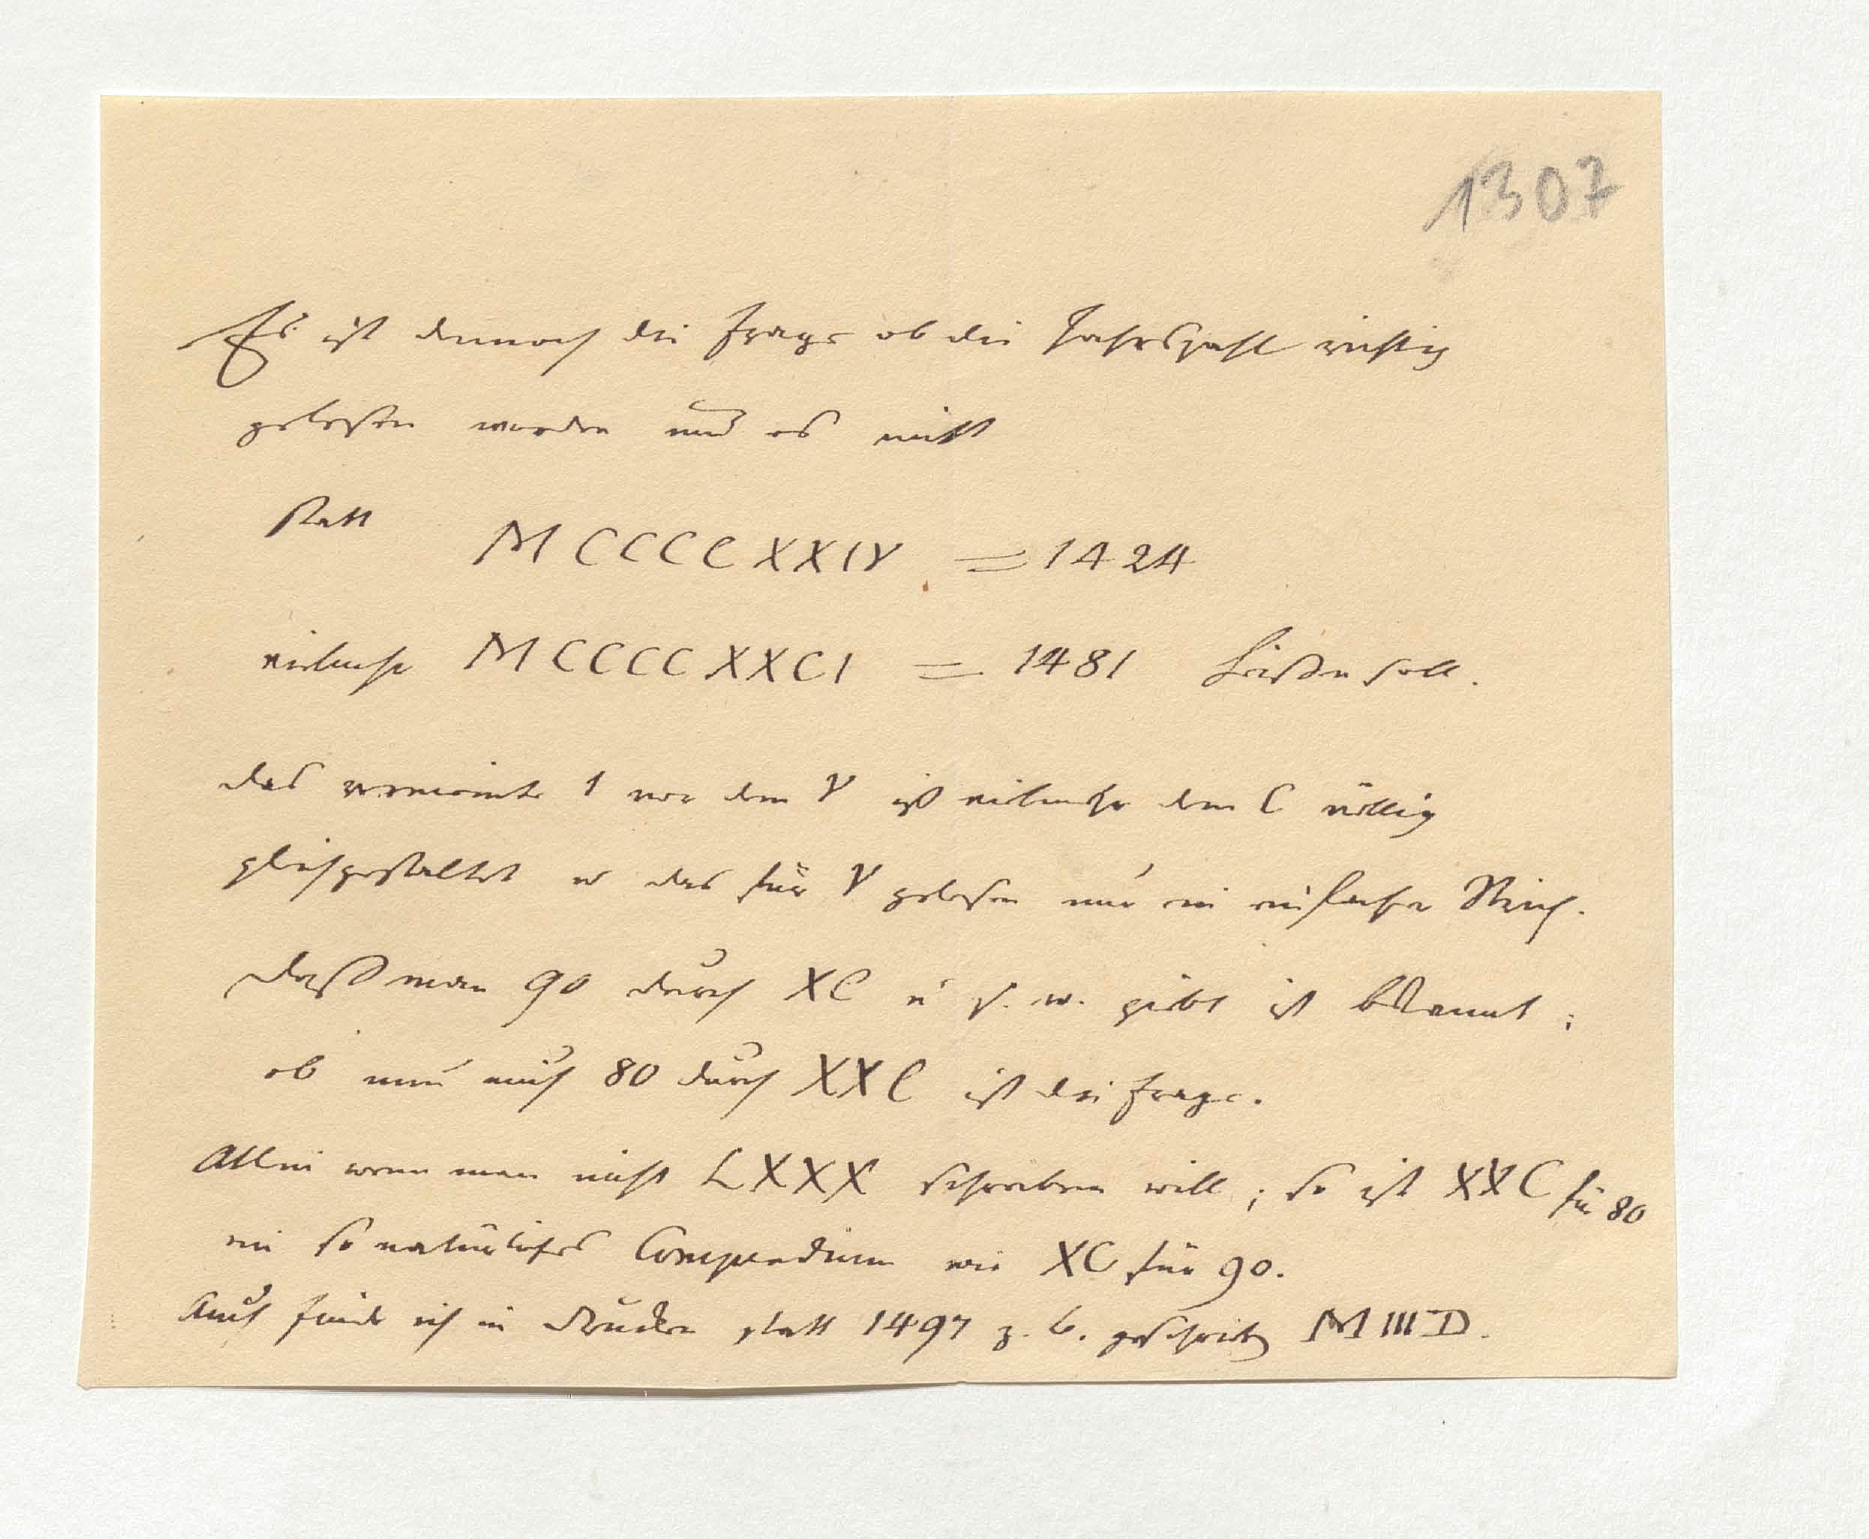 1307
Es ist dennoch die Frage ob die Jahrszahl richtig
gelesen worden und es nicht
statt MCCCCXXIV = 1424
vielmehr MCCCCXXCI = 1481 heißen soll.
das vermeinte I vor dem V ist vielmehr dem C völlig
gleichgestaltet u das für V gelesen nur ein einfacher Strich.
Daß man 90 durch XC u s. w. giebt ist bekannt;
ob nun auch 80 durch XXC ist die Frage.
Allein wenn man nicht LXXX schreiben will; so ist XXC für 80
ein so natürliches Compendium wie XC für 90.
Auch finde ich in Drucken statt 1497 z. b. geschrieb MIIID.